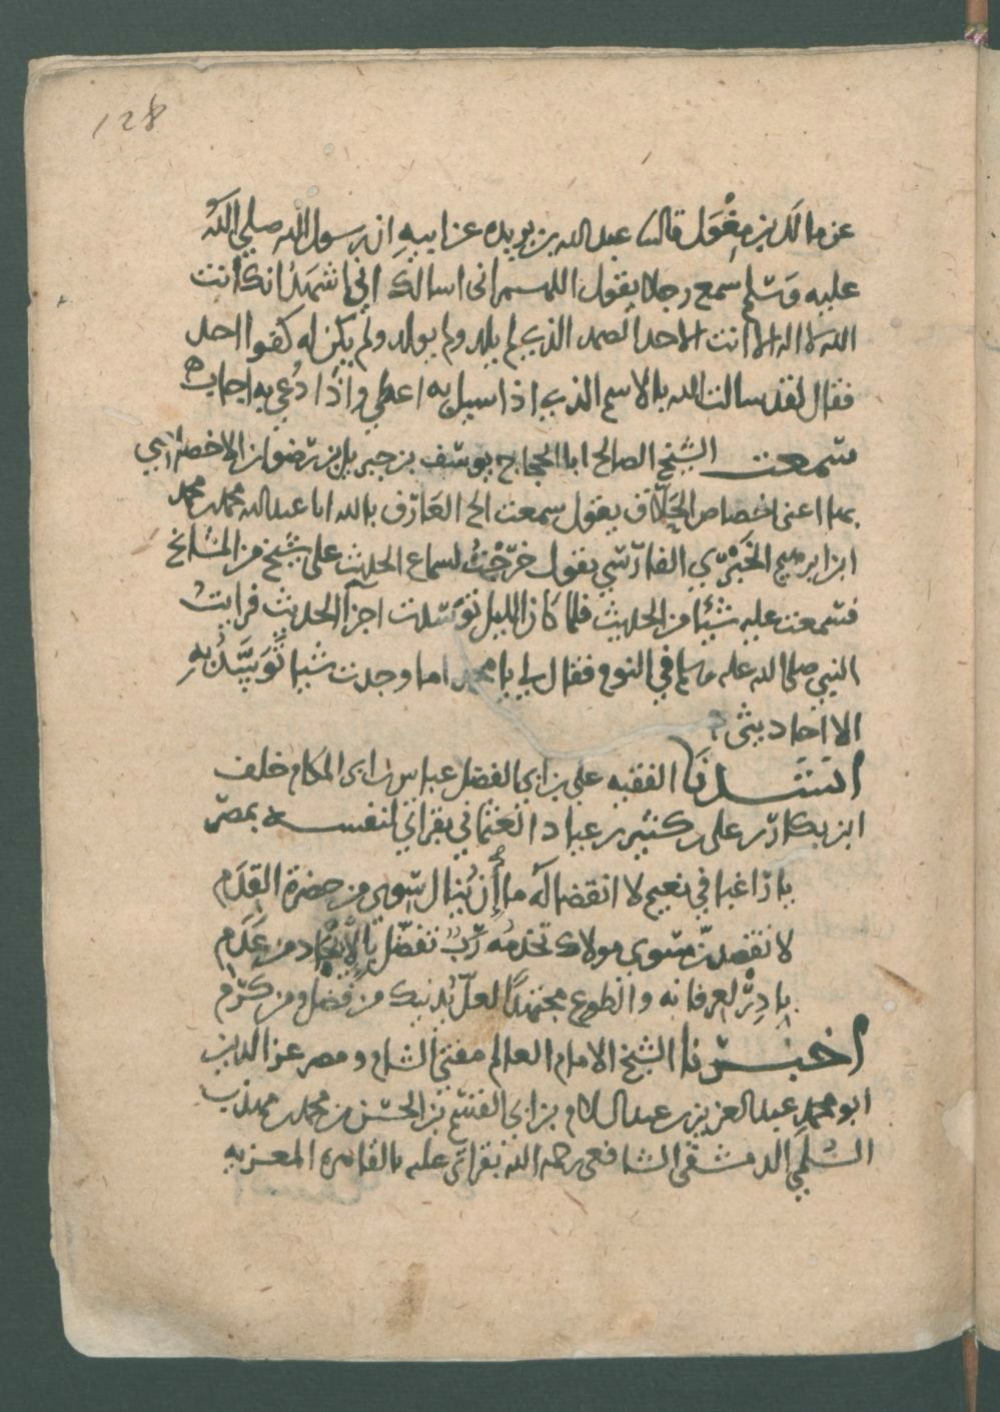 128
عن مالك بن مِغْوَل قال ثنا عبد الله بن بريده عن ابيهِ ان رسول الله صلي الله
عليه وسّلم سمع رجلا يقول اللهم انى اسالك اني اشهدُ انك انت
الله لا اله الا انت الاحد الصمد الذي لم يلد ولم يولد ولم يكن له كفوا احد
فقال لقد سالت الله بالاسم الذي اذا سيل به اعطي واذا دُعي به اجاب ه
سّمعت الشيخ الصالح ابا الحجاج يوسّف بن جبريل بن رّضوان
يقول سمعت العَارّف بالله ابا عبد الله محمد بن محمد
ابن ابرهيم الخَبْرّي الفارّسّي يقول خرّجْتُ لسماع الحديث على شيخ من المشايخ
فسّمعت عليه شيئا من الحديث فلما كان الليل توسّدت اجزآ الحديث فرايتُ
النبي صلى الله عليه وسلم في النوم فقال لي يا محمد اما وجدت شيا تُوسَّدُ بهِ
الا احاديثى ؟
انشدنا الفقيه علي بن ابي الفضل عباس بن ابى المكارم خلف
ابن بكارّ بن علي بن كثير بن عباد العثماني بقراتي لنفسه بمصرّ
يا رّاغبا في نعيم لا انقضا لَه ما أن يُنال سّوى من حضرة القِدَم
لا تقصدنّ سّوى مولاك تخدمُه رّبٌ تفضّل بالإيْجَاد من عَدَم
بادِرّ لعرفانه والطوع مجتهدًا لعلّ يُدنيك من فضل ومن كرّم
اخبرّنا الشيخ الامام العالم مفتي الشام ومصر عز الدين
ابو محمد عبد العزيز بن عبد السلام بن ابي القسّم بن الحسّن بن محمد بن مهذب
السُّلَمي الدمشقى الشافعى رحمه الله بقراتي عليه بالقاهرة المعزيه